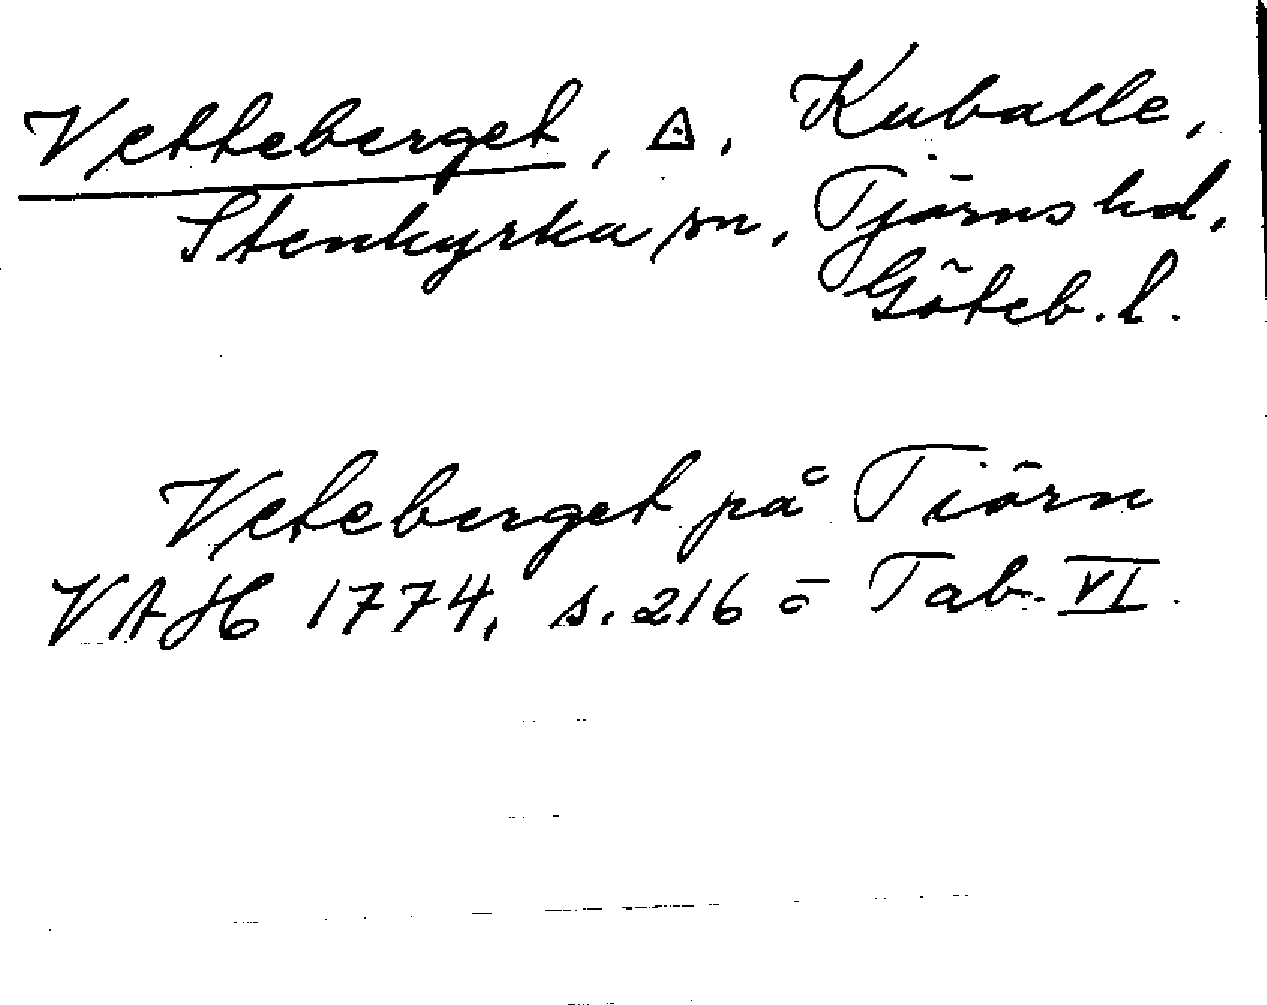 Vetteberget, ⟁, Kuballe,
Stenkyrka sn, Tjörns hd,
Göteb. l.
Veteberget på Tiörn
VAH 1774, s. 216 ō Tab. VI.